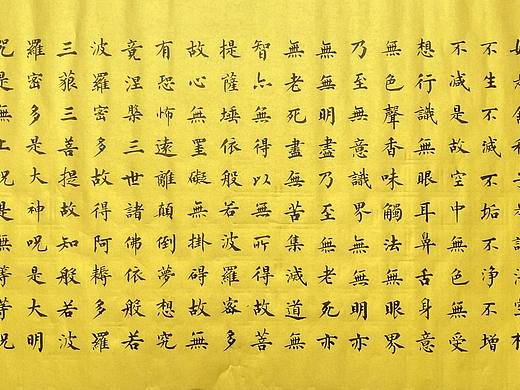 不生不滅不垢不淨不增
不減是故空中無色無受
想行識無眼耳鼻舌身意
無色聲香味觸法無眼界
乃至無意識界無無明亦
無無明盡乃至無老死亦
無老死盡無苦集滅道無
智亦無得以無所得故菩
提薩埵依般若波羅密多
故心無罣礙無掛碍故無
有恐怖遠離顛倒夢想究
竟涅槃三世諸佛依般若
波羅密多故得阿耨多羅
三藐三菩提故知般若波
羅密多是大神呪是大明
呪是無上呪是無等等呪